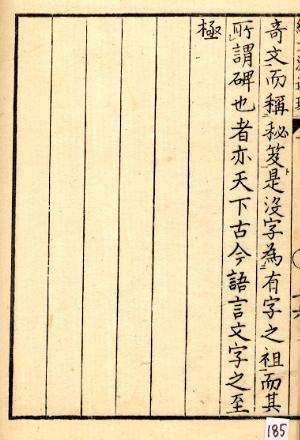 奇文而稱秘笈是沒字為有字之祖而其
所謂碑也者亦天下古今語言文字之至
極
185